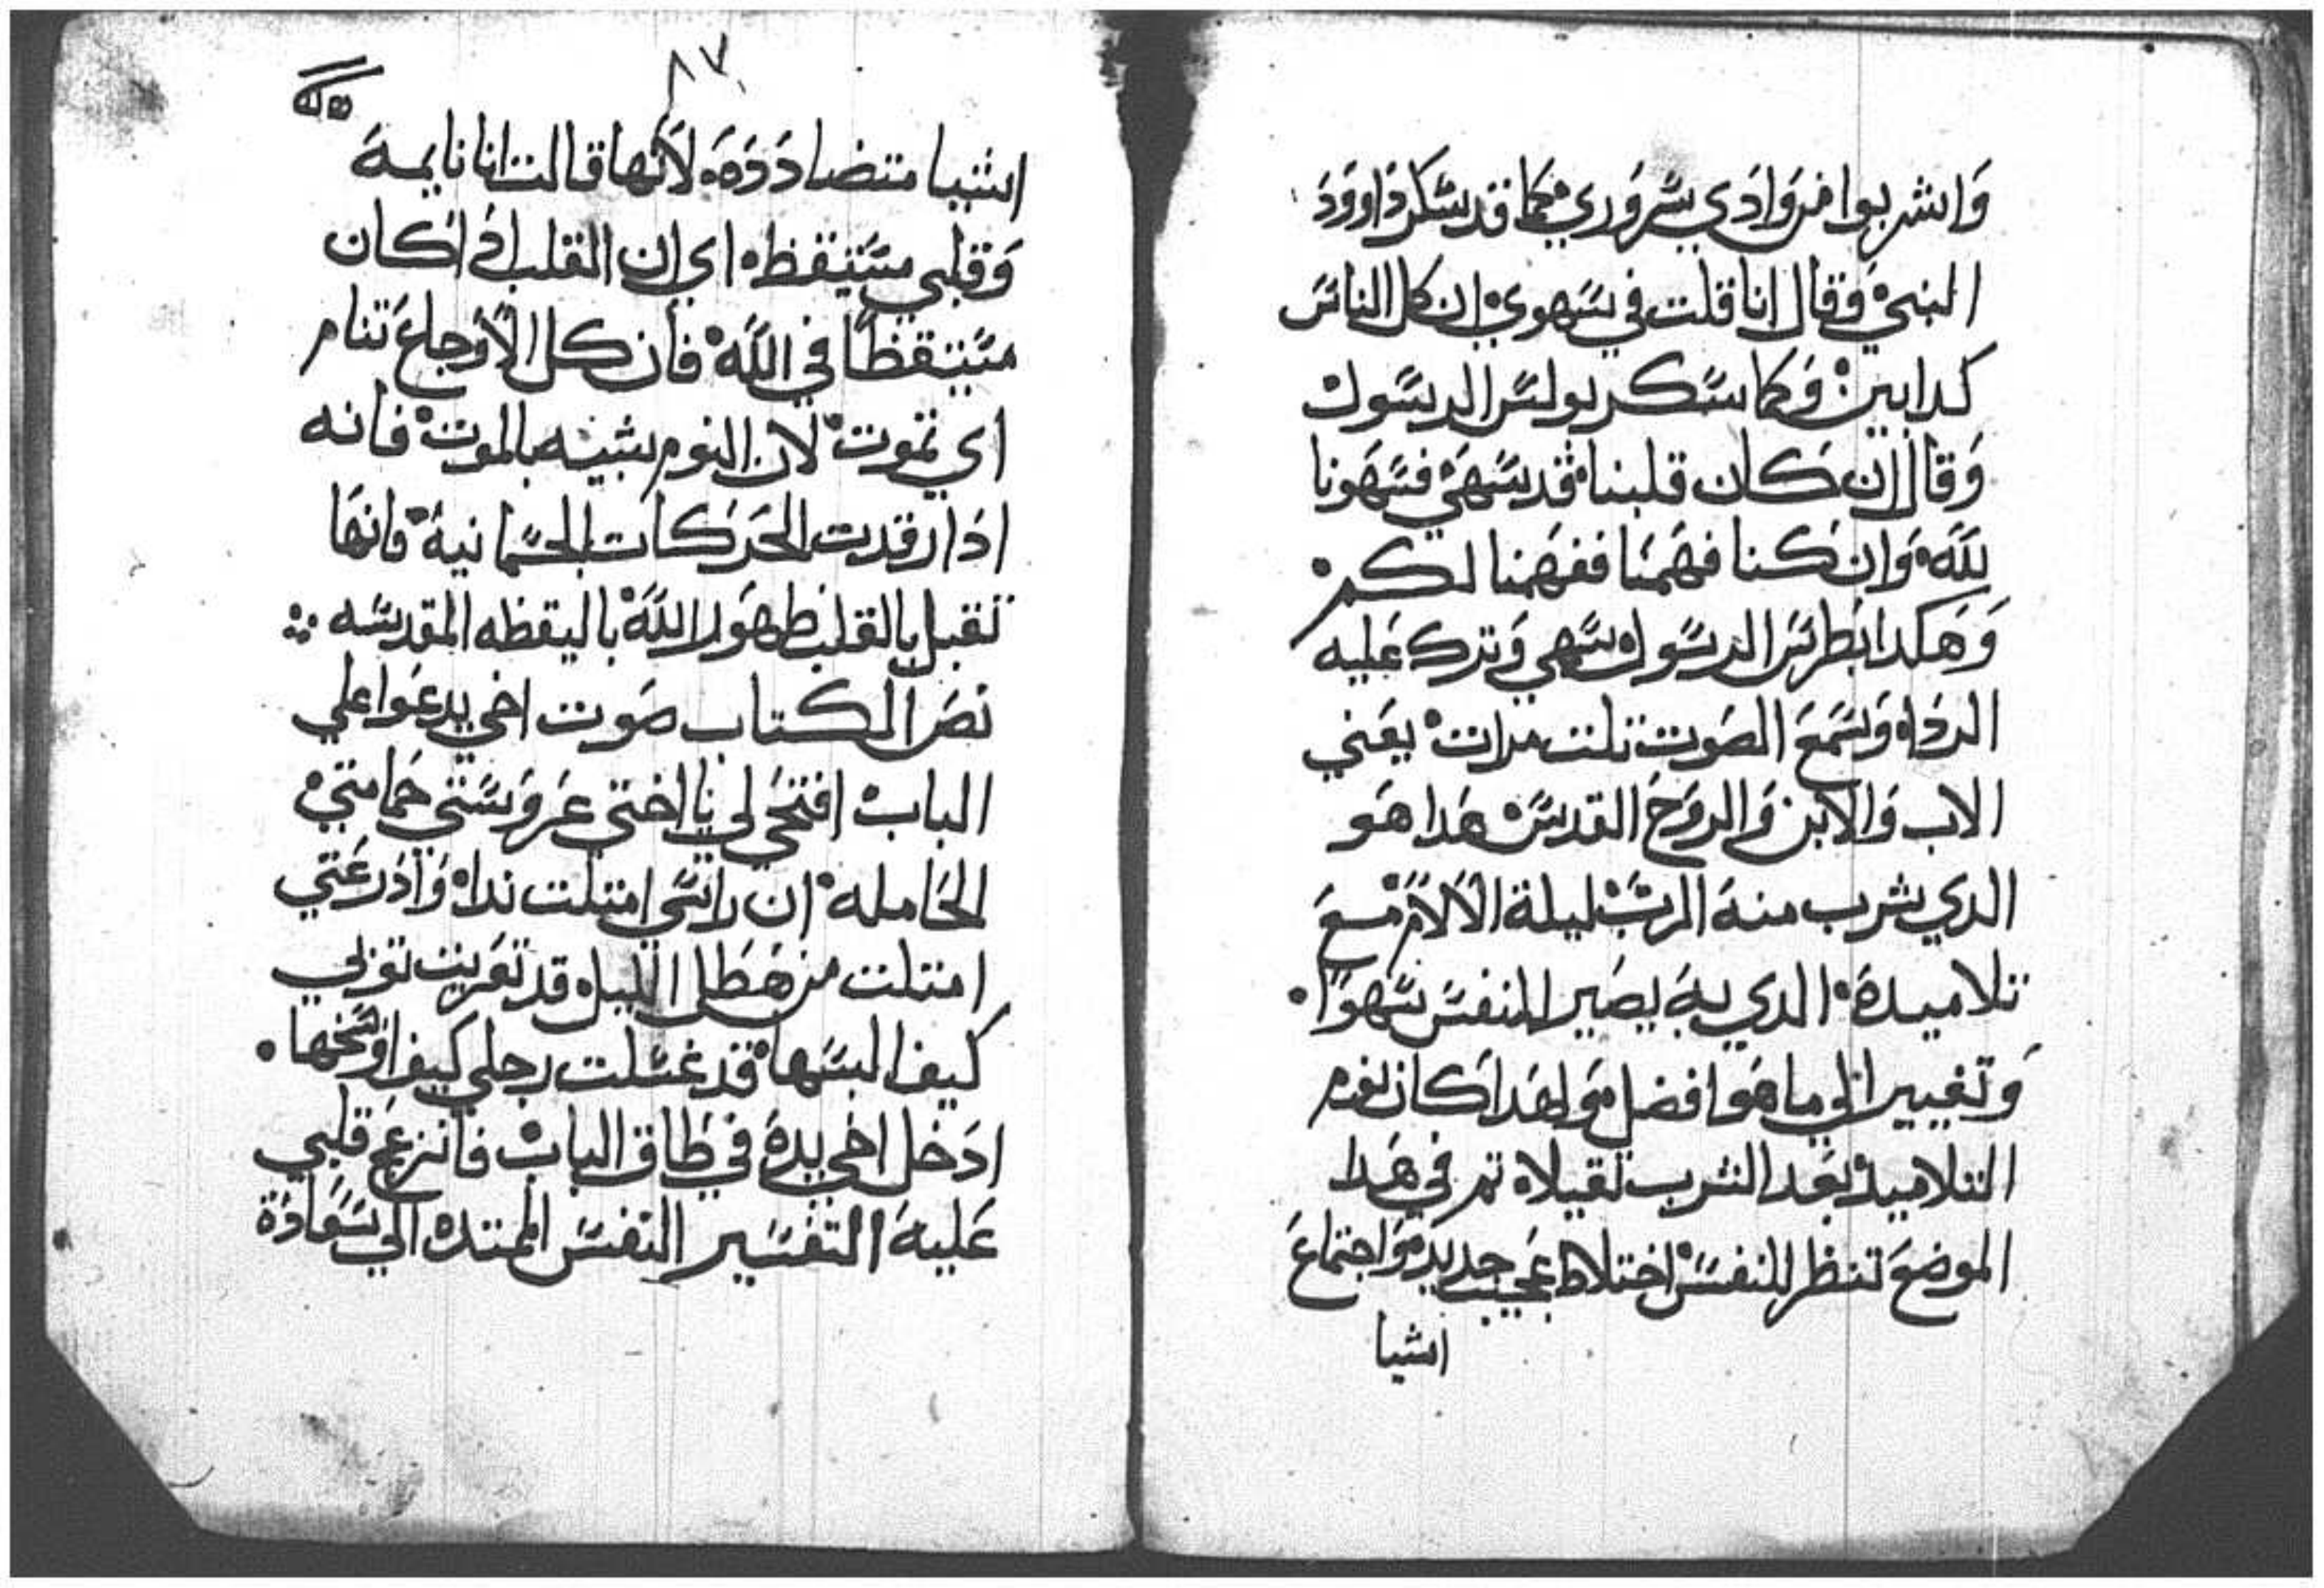 وَاشربوا من وَادَي سَروَري كما قد سَكر دَاووَد
النبيْ وَقال انا قلت في سَهوي ان كل الناسَ
كدابين: وَكما سَكر بولسَ الرسَوك
وَقال ان كَان قلبناْ قد سَهَيْ فسَهَونا
للهَْ وَان كنا فهَمنا ففهَمنا لكم.
وَهَكدا بَطرسَ الرسَول سَهي وَترك عَليه
الردَاه وَسَمعَ الصَوت تلت مرات يعَني
الاب وَالابن وَالروَحَ القدسَ هَدا هَو
الدي شرب منهَ الربَ ليلة الاَلاَمَْ معَ
تلاميدهَْ الدي بهَ يصَير للنفسَ سَهوَا.
وَتغيير الي ما هَو افضلْ وَلهَدا كان نوم
التلاميدْ بعَد الشرب تقيلا تم في هَدا
الموضعَ تنظر للنفسَْ اختلاط عَجيب جديدْ وَاجتماعَ
اشيا
٨٧
اشيا متضادَدَهَْ لاَنها قالت انا نايمهَ
وَقلبي مسَتيقظه اي ان القلب ادَا كان
مسَتيقظاً في اللهَْ فان كل الاَوجاعَ تنام
اي تموتْ لان النوم شبيه بالموتْ فانه
ادَا رقدت الحَركات الجسَمانيةْ فانهَا
تقبل بالقلب ظهَور اللهَْ باليقظه المقدسَه ⁘
نصَ الكتاب صَوت اخي يدعَوا علي
البابْ افتحَي لي يا اختي عَروَسَتي حَمامتيْ
الحَاملهْ ان راسَي امتلت نداْ وَادَرعَتي
امتلت من هَطل الليل قد تعَريت توبي
كيف البسَهاْ قد غسَلت رجلي كيف اوَسَخها.
ادَخل اخي يدهَ في طَاق البابْ فانزعَج قلبي
عَليهَ التفسَير النفسَ الممتده الي سَعَادَة